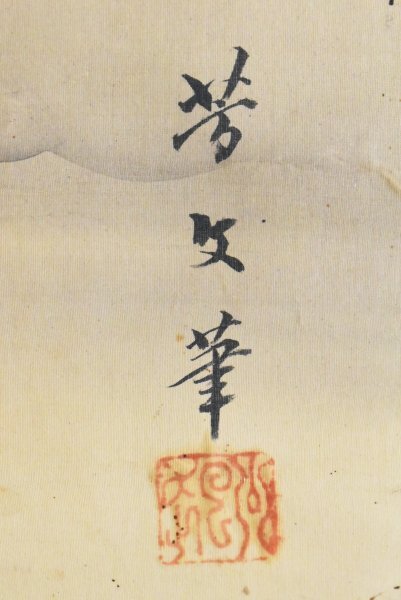 芳文筆